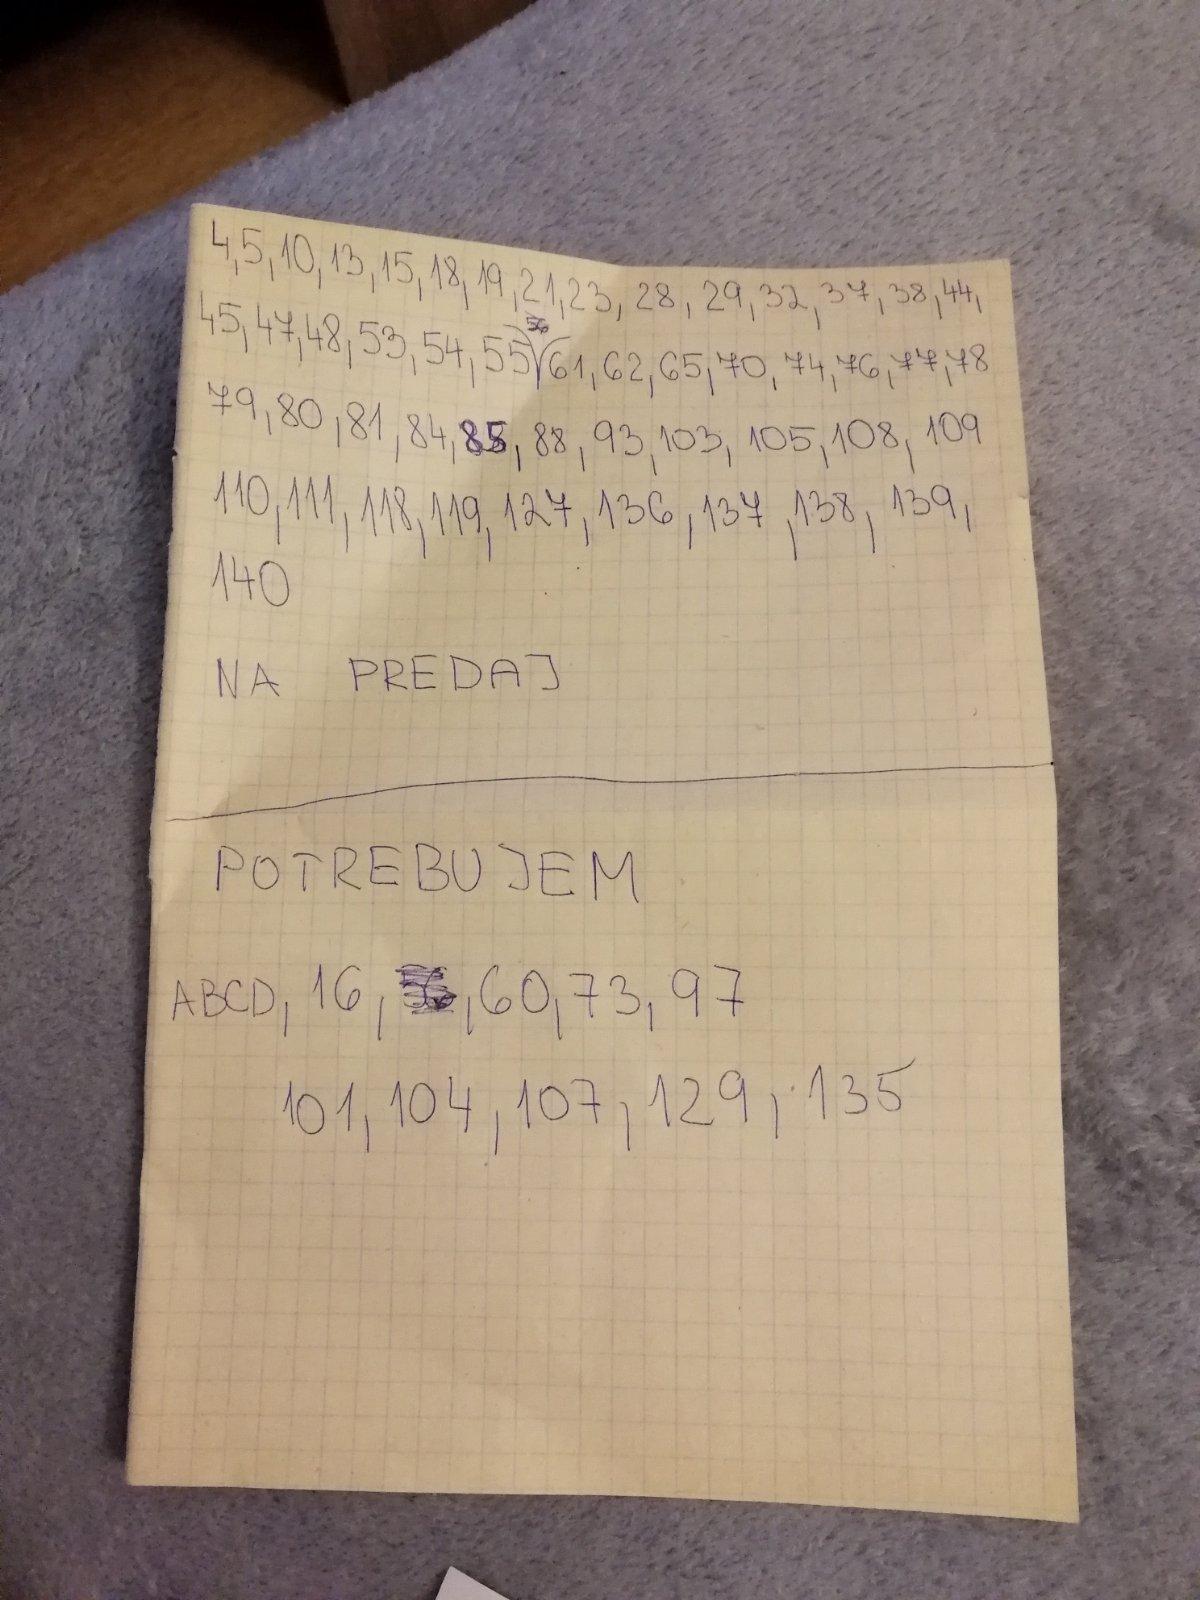 4, 5, 10, 13, 15, 18, 19, 21, 23, 28, 29, 32, 37, 38, 44,
56
45, 47, 48, 53, 54, 55, 61, 62, 65, 70, 74, 76, 77, 78
79, 80, 81, 84, 85, 88, 93, 103, 105, 108, 109
110, 111, 118, 119, 127, 136, 137, 138, 139,
140
NA PREDAJ
POTREBUJEM
ABCD, 16, 56, 60, 73, 97
101, 104, 107, 129, 135